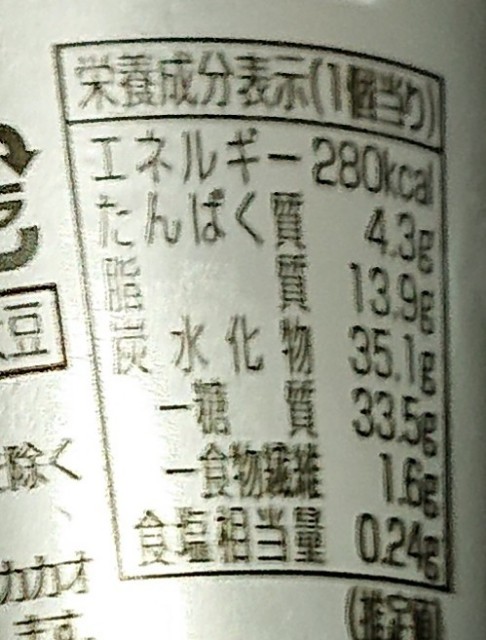 栄養成分表示(1個当り)
エネルギー 280kcal
たんぱく質 4.3g
脂質 13.9g
炭水化物 35.1g
－糖質 33.5g
－食物繊維 1.6g
食塩相当量 0.24g
(推定値
豆
除く
カカオ
ます